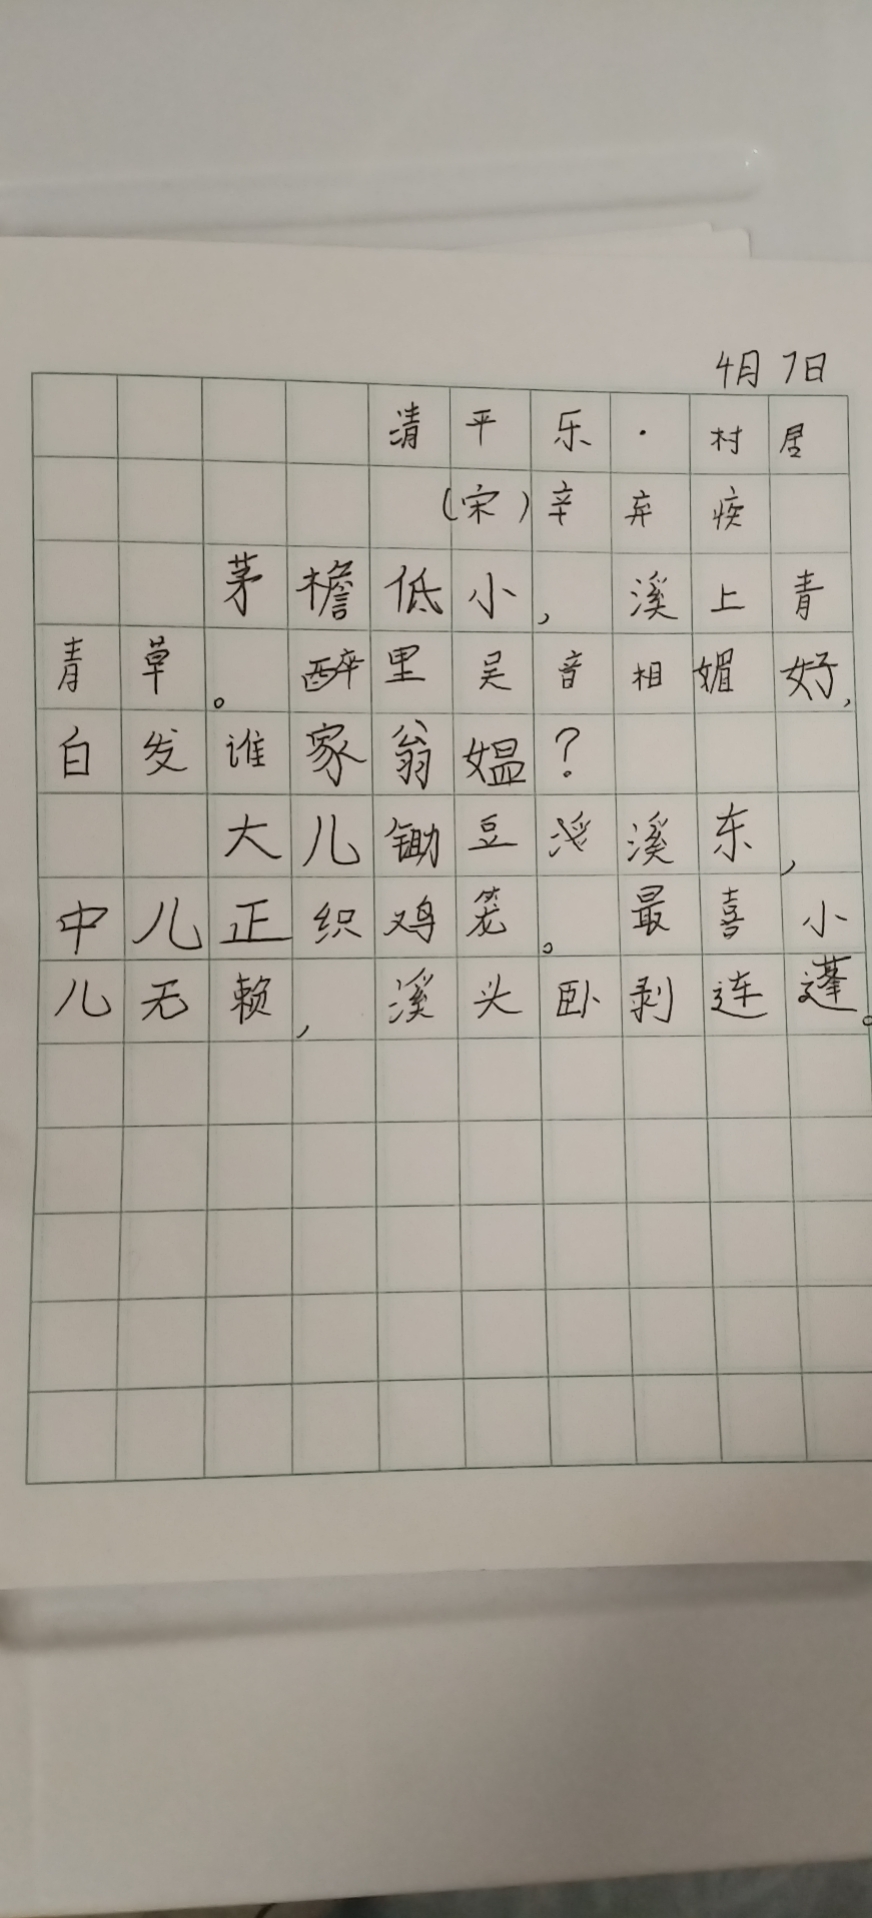 4月7日
清平乐·村居
(宋)辛弃疾
茅檐低小,溪上青
青草。醉里吴音相媚好,
白发谁家翁媪?
大儿锄豆溪东,
中儿正织鸡笼。最喜小
儿无赖,溪头卧剥连蓬。